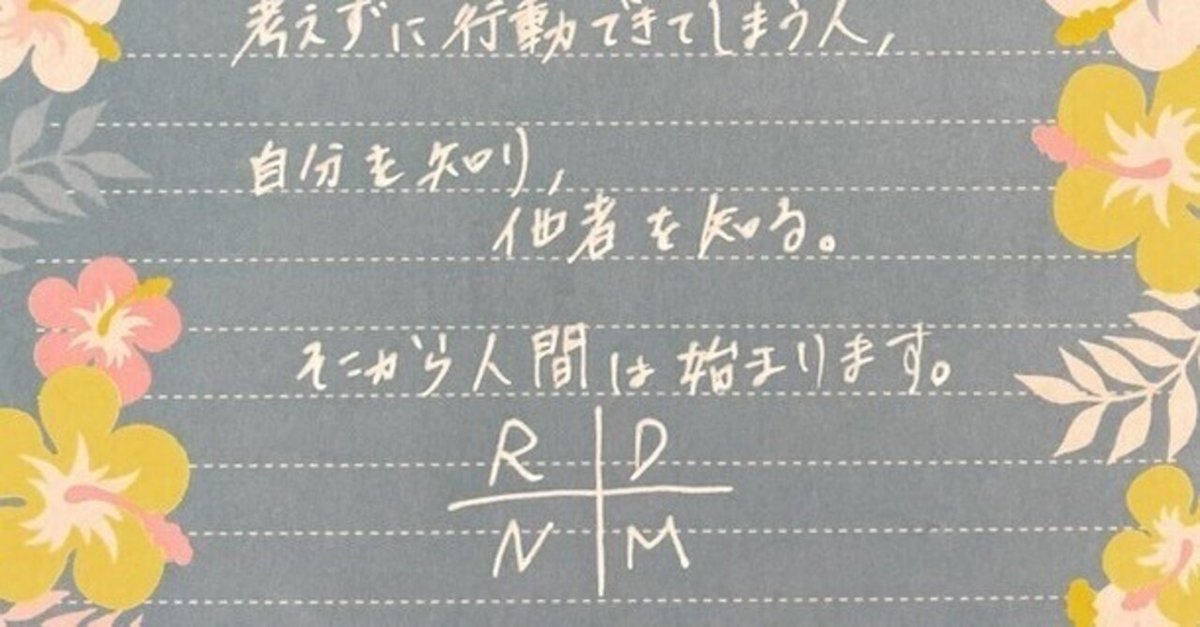 考えずに行動できてしまう人,
自分を知り,
他者を知る。
そこから人間は始まります。
R D
N M